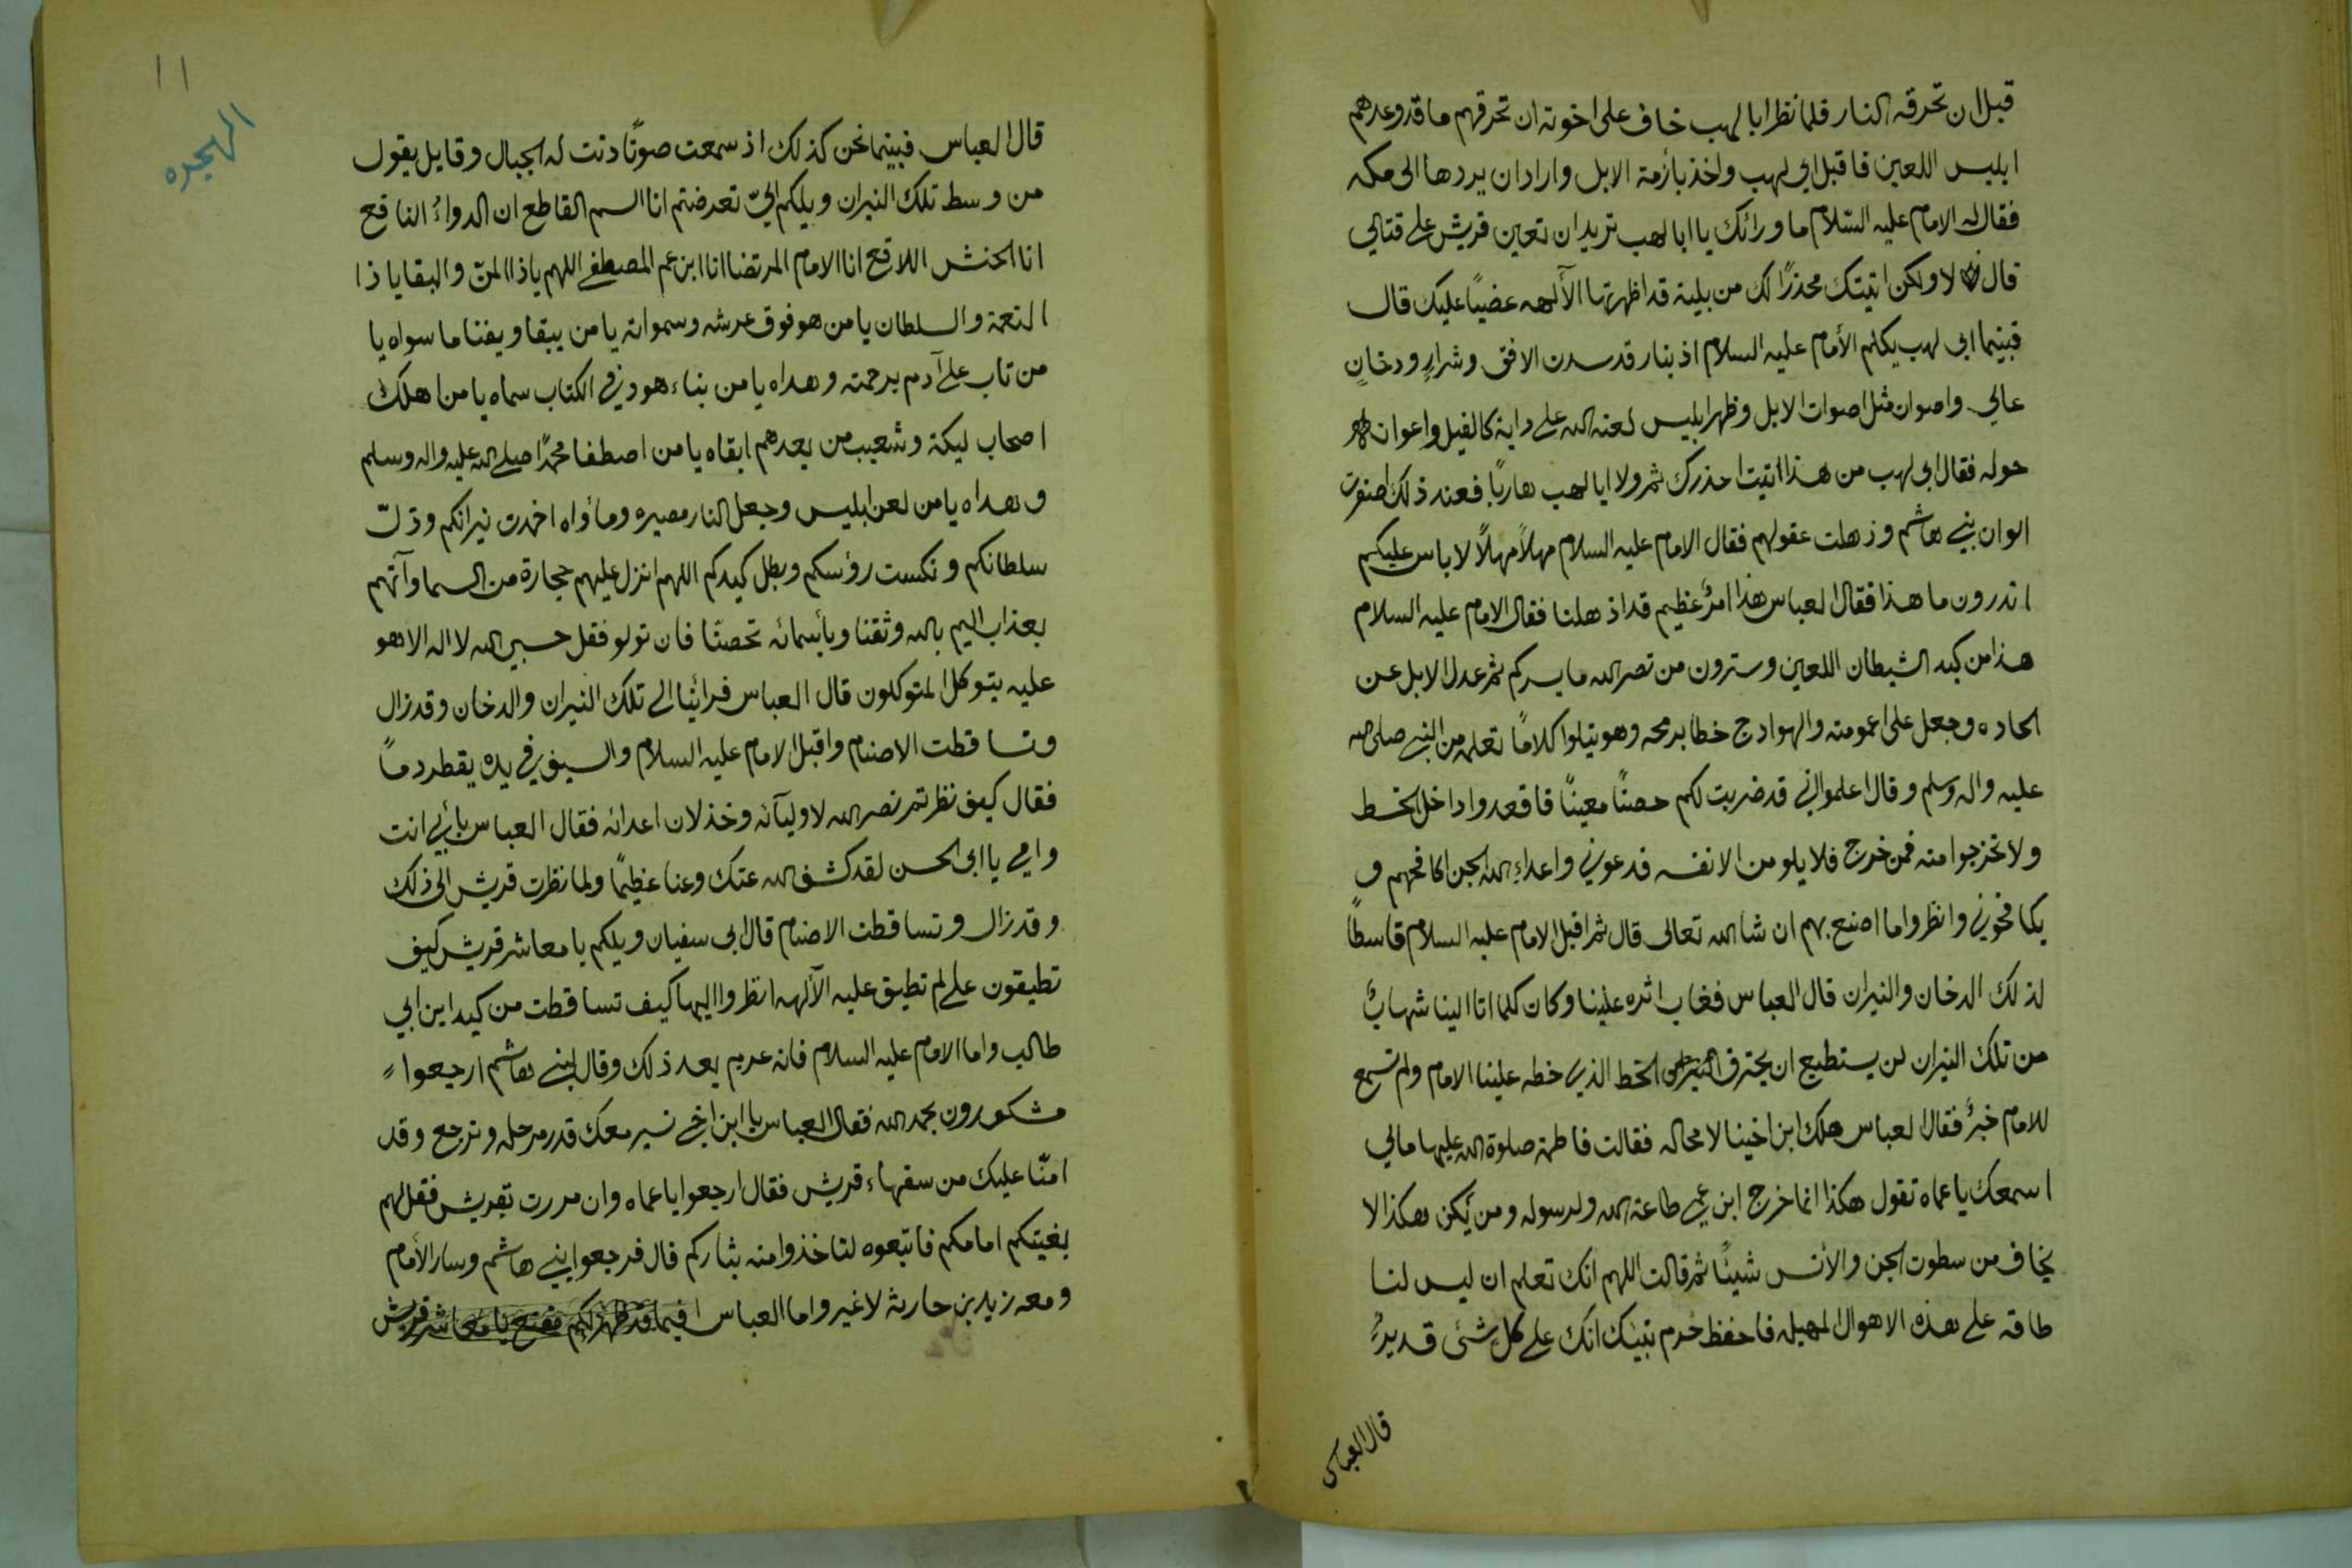 قبل ان تحرقه النار فلما نظر ابا لهب خاف على اخوته ان تحرقهم ما قد وعدهم
ابليس اللعين فاقبل ابي لهب واخذ بأزمة الابل واراد ان يردها الى مكه
فقال له الامام عليه السّلام ما ورائك يا ابا لهب تريد ان تعين قريش على قتالي
قال لا ولكن اتيتك محذرًا لك من بلية قد اظهرتها الآلهه غضبًا عليك قال
فبينما ابي لهب يكلم الأمام عليه السلام اذ بنار قد سدت الافق وشرارٍ ودخانٍ
عالي واصوات مثل اصوات الابل وظهر ابليس لعنه الله على دابة كالفيل واعوانه
حوله فقال ابي لهب من هذا اتيت احذرك ثم ولا ابا لهب هاربًا فعند ذلك اصفرت
الوان بني هاشم وذهلت عقولهم فقال الامام عليه السلام مهلاً مهلاً لا باس عليكم
اتدرون ما هذا فقال العباس هذا امرٌ عظيم قد اذهلنا فقال الامام عليه السلام
هذا من كيد الشيطان اللعين وسترون من نصر الله ما يسركم ثم عدل الابل عن
الجاده وجعل على اعمومته والهوادج خطا برمحه وهو يتلوا كلامًا تعلمه من النبي صلى الله
عليه واله وسلم وقال اعلموا اني قد ضربت لكم حصنًا معينًا فاقعدوا داخل الخط
ولا تخرجوا منه فمن خرج فلا يلومن الا نفسه فدعوني واعداءِ الله الجن اكافحهم و
يكافحوني وانظروا ما اصنع بهم ان شا الله تعالى قال ثم اقبل الامام عليه السلام قاسطًا
لذلك الدخان والنيران قال العباس فغاب اثره علينا وكان كلما اتا الينا شهابٌ
من تلك النيران لن يستطيع ان يحترق الخط الذي خطه علينا الامام ولم نسمع
للامام خبرٌ فقال العباس هلك ابن اخينا لا محاله فقالت فاطمة صلوة الله عليها مالي
اسمعك يا عماه تقول هكذا انما خرج ابن عمي طاعة الله ولرسوله ومن يكن هكذا لا
يخاف من سطوت الجن والأنس شيئًا ثم قالت اللهم انك تعلم ان ليس لنا
طاقه على هذه الاهوال المهيله فاحفظ حرم نبيك انك على كل شئ قديرٌ
قال العباس
١١
الهجره
قال العباس فبينما نحن كذلك اذ سمعت صوتًا دنت له الجبال وقايل يقول
من وسط تلك النيران ويلكم اليّ تعرضتم انا السم القاطع ان الدواءُ النافع
انا الحنش اللاقع انا الامام المرتضا انا ابن عم المصطفى اللهم يا ذا المنّ والبقا يا ذا
النعمة والسلطان يا من هو فوق عرشه وسمواته يا من يبقا ويفنا ما سواه يا
من تاب على آدم برحمته وهداه يا من بناء هود في الكتاب سماه يا من اهلك
اصحاب ليكة وشعيب من بعدهم ابقاه يا من اصطفا محمدًا صلى الله عليه واله وسلم
وهداه يا من لعن ابليس وجعل النار مصيره ومأواه اخمدت نيرانكم وذلت
سلطانكم ونكست رؤسكم وبطل كيدكم اللهم انزل عليهم حجارة من السما وآتهم
بعذاب اليم بالله وثقنا وبأسمائه تحصنّا فان تولو فقل حسبي الله لا اله الا هو
عليه يتوكل المتوكلون قال العباس فرائينا الى تلك النيران والدخان وقد زال
وتساقطت الاصنام واقبل الامام عليه السلام والسيف في يده يقطر دمًا
فقال كيف نظرتم نصر الله لاوليآئه وخذلان اعدائه فقال العباس بأبي انت
وامي يا ابى الحسن لقد كشف الله عنك وعنا عظيمًا ولما نظرت قريش الى ذلك
وقد زال وتساقطت الاصنام قال ابى سفيان ويلكم يا معاشر قريش كيف
تطيقون على لم تطيق عليه الآلهه انظروا اليها كيف تساقطت من كيد ابن ابي
طالب واما الامام عليه السلام فانه عدبهم بعد ذلك وقال لبني هاشم ارجعوا
مشكورون بحمد الله فقال العباس يا ابن اخي نسير معك قدر مرحله ونرجع وقد
امنّا عليك من سفهاء قريش فقال ارجعوا يا عماه وان مررت بقريش فقل لهم
بغيتكم امامكم فاتبعوه لتاخذوا منه بثاركم قال فرجعوا بني هاشم وسار الأمام
ومعه زيد بن حارثه لا غير واما العباس